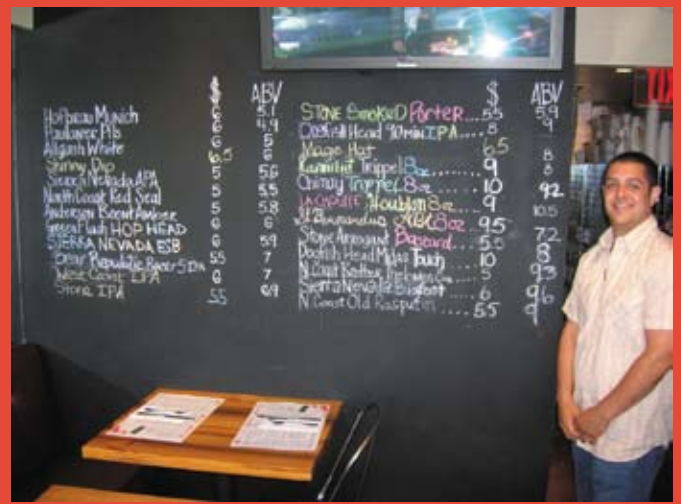 $ ABV
Hofbrau Munich 6 5.1
Paulaner Pils 6 4.9
Allagash White 6 5
Skinny Dip 6.5 6
Sierra Nevada APA 5 5.6
North Coast Red Seal 5 5.5
Anderson Boont Amber 5 5.8
Green Flash HOP HEAD 6 6
SIERRA NEVADA ESB 6 5.9
Bear Republic Racer 5 IPA 5.5 7
West Coast IPA 6 7
Stone IPA 5.5 6.9
$ ABV
STONE SMOKED PORTER... 5.5 5.9
Dogfish Head 90min IPA.... 8 9
Magic Hat 6.5
Trippel 8oz....... 9 8
Chimay Trippel 8oz.... 10 8
Houblon 8oz 9 9.2
St. Bernardus 8oz 9.5 10.5
Stone Arrogant Bastard.... 5.5 7.2
Dogfish Head Midas Touch 10
N Coast Brother Thelonious 5 9.3
Sierra Nevada Bigfoot.... 6 9.6
N Coast Old Rasputin.... 5.5 9